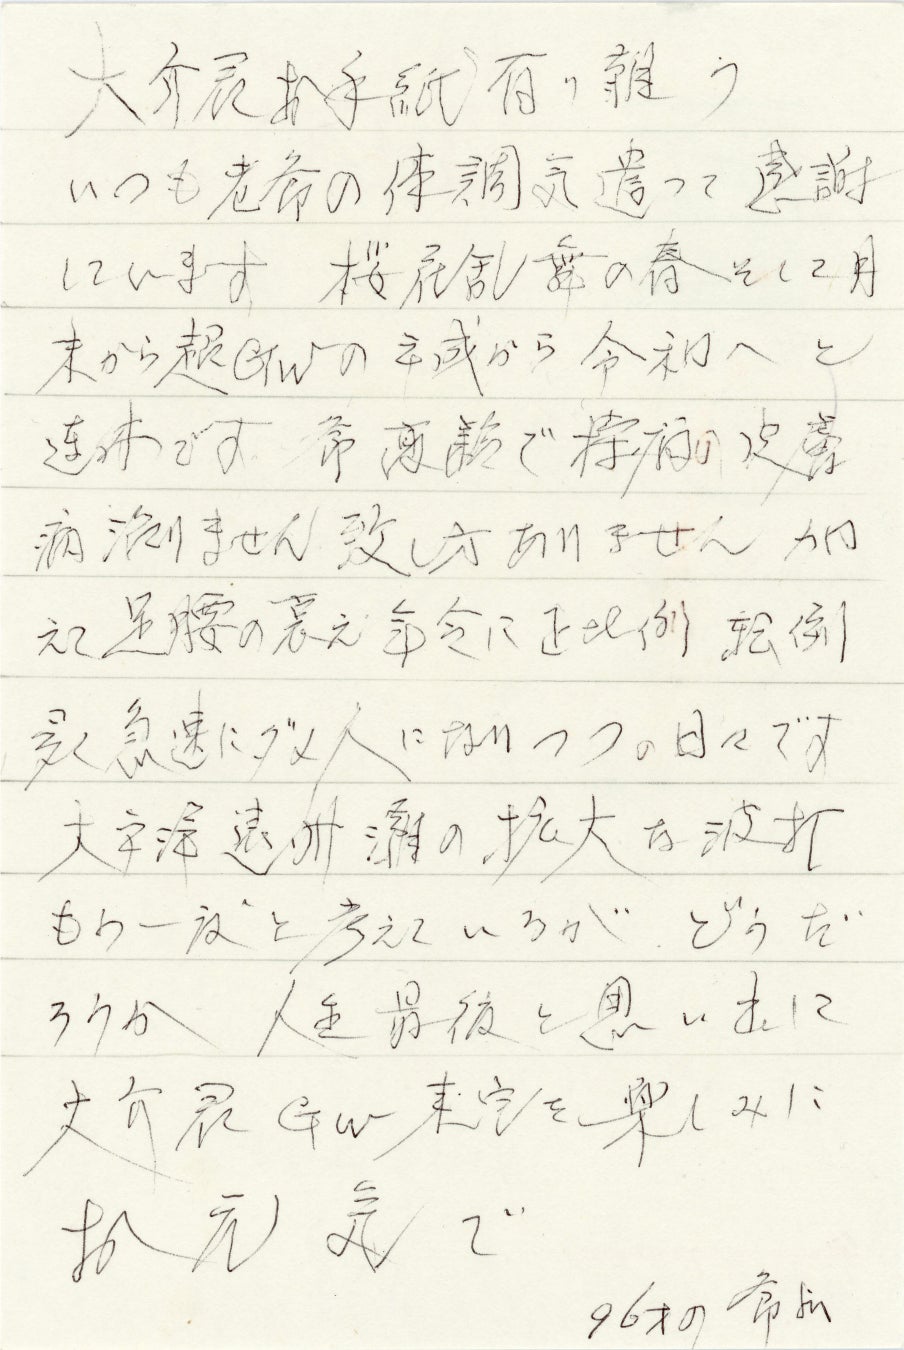 大介君お手紙有り難う
いつも老爺の体調気遣って感謝
しています 桜花乱舞の春そして月
末から超GWの平成から令和へと
連休です 爺高齢で 皮膚
病治りません致し方ありません加
えて足腰の衰え年令に正比例 転倒
多く急速にダメ人になりつつの日々です
太平洋遠州灘の拡大な波打
もう一度と考えているが どうだ
ろうか 人生最後と思い出に
大介君GW来宅を楽しみに
お元気で
96才の爺